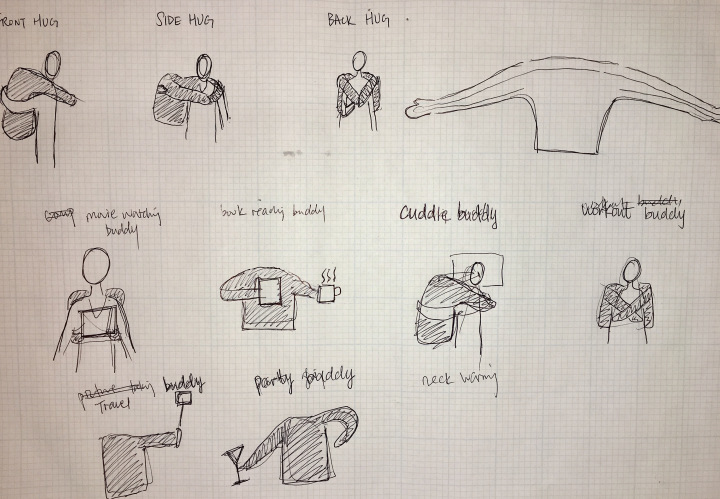 FRONT HUG
SIDE HUG
BACK HUG
movie watching
buddy
book reading buddy
cuddle buddy
workout buddy,
buddy
neck warming
picture taking buddy
Travel
party buddy